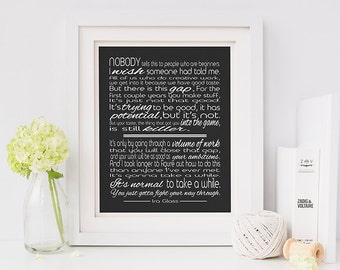 NOBODY tells this to people who are beginners
I wish someone had told me.
All of us who do creative work,
we get into it because we have good taste
But there is this gap. For the
first couple years you make stuff,
It's just not that good
It's trying to be good, it has
potential, but it's not.
But your taste, the thing that got you into the game,
is still killer.
It's only by going through a volume of work
that you will close that gap,
and your work will be as good as your ambitions.
And I took longer to figure out how to do this
than anyone I've ever met.
It's gonna take a while.
It's normal to take a while.
You just gotta fight your way through.
Ira Glass
ZADIG &
VOLTAIRE